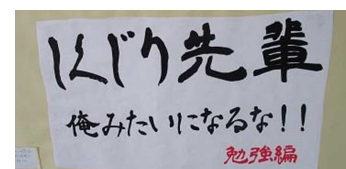 しくじり先輩
俺みたいになるな!!
勉強編